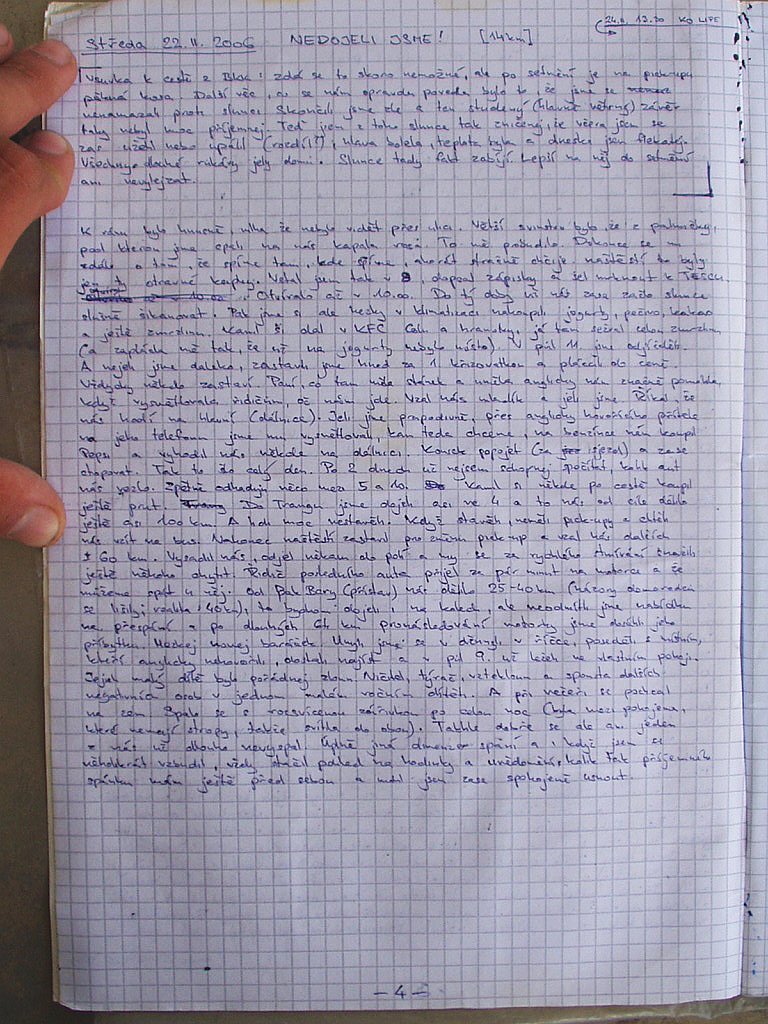 24.11. 13.30 KO LIPE
Středa 22.11.2006 NEDOJELI JSME! [14km]
Vsuvka k cestě z Blac: zdá se to skoro nemožné, ale po setmění je na pick-upu
pěkná kosa. Další věc, co se nám opravdu povedla bylo to, že jsme se
nenamazali proti slunci. Skončili jsme dle a ten studený (hlavně větrný) závěr
taky nebyl moc příjemný. Teď jsem z toho slunce tak zničený, že včera jsem se
zas úžehl nebo upálil (rozdíl?), hlava bolela, teplota byla a dneska jsem
Všechny dlouhé rukávy jely domů. Slunce tady fakt zabíjí. Lepší na něj do setmění
ani nevylejzat.
K ránu bylo hnusně, mlha že nebylo vidět přes ulici. Větší svinstvo bylo, že z palmočky,
pod kterou jsme spali na nás kapala rosa. To mě probudilo. Dokonce se mi
zdálo o tom, že spíme tam, kde spíme, akorát strašně chčije, naštěstí to byly
jen ty otravné kapky. Vstal jsem tak v 8, dopsal zápisky a šel mrknout k TESCU.
Otvíralo až v 10.00. Do tý doby už nás zase začlo slunce
slušně šikanovat. Pak jsme si ale hezky v klimatizaci nakoupili jogurty, pečivo, kakao
a ještě zmrzlinu. Kamil si dal v KFC Colu a hranolky, já tam sežral celou zmrzlinu
(a zaplácla mě tak, že už na jogurty nebylo místo). V půl 11 jsme odjížděli.
A nejeli jsme daleko, zastavili jsme hned za 1 křižovatkou a
Vždycky někdo zastaví. Paní, co tam měla stánek a uměla anglicky nám značně pomohla,
když vysvětlovala řidičům, až nám jde. Vzal nás mladík a jeli jsme. Říkal, že
nás hodí na hlavní (dálnice). Jeli jsme prapodivně, přes anglicky hovořícího přítele
na jeho telefonu jsme mu vysvětlovali, kam teda chceme, na benzínce nám koupil
Pepsi a vyhodil nás někde na dálnici. Kousek popojet (za sjezd) a zase
stopovat. Tak to šlo celý den. Po 2 dnech už nejsem schopnej spočítat, kolik aut
nás vezlo. Zpětně odhaduji něco mezi 5 a 10. Kamil si někde po cestě koupil
ještě prut. Do Trangu jsme dojeli asi ve 4 a to nás od cíle dělilo
ještě asi 100 km. A hodi moc nestavěli. Když stavěli, neměli pick-upy a chtěli
nás vézt na bus. Nakonec naštěstí zastavil pro změnu pick-up a vzal nás dalších
± 60 km. Vysadil nás, odjel někam do polí a my se za rychlého stmívání snažili
ještě někoho chytit. Řidič posledního auta přijel za pár minut na motorce a že
můžeme spát u něj. Od Pak Bary (přístav) nás dělilo 25-40 km (názory domorodců
se lišily, realita: 40 km), to bychom dojeli i na kolech, ale neodmítli jsme nabídku
na přespání a po dlouhých 14 km pronásledování motorky jsme dorazili k jeho
příbytku. Hezkej novej baráček. Umyli jsme se v džínách v říčce, poseděli s místním,
kteří anglicky nehovořili, dostali najíst a v půl 9. už leželi ve vlastním pokoji.
Zejak malý dítě bylo pořádnej zloun. Ničitel, tyran, vzteklounn a spousta dalších
negativních osob v jednom malém ročním dítěti. A při večeři se pochcal
na zem. Spalo se s rozsvícenou zářivkou po celou noc (byla mezi pokojema,
které nemají stropy, takže svítila do obou). Takhle dobře se ale ani jeden
z nás už dlouho nevyspal. Úplně jiná dimenze spaní a i když jsem se
několikrát vzbudil, vždy stačil pohled na hodinky a uvědomění, kolik tak příjemného
spánku mám ještě před sebou a mohl jsem zase spokojeně usnout.
- 4 -